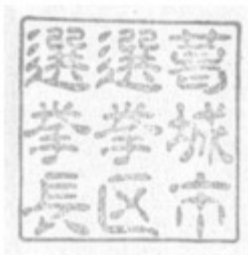 葛城市
選挙区
選挙長